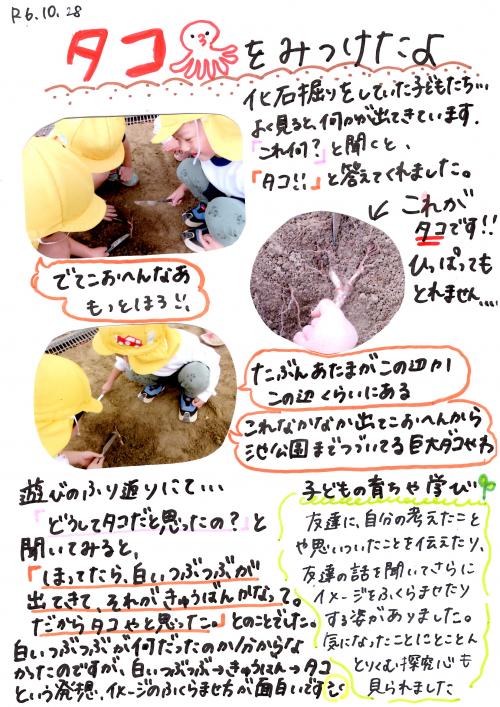 R6.10.28
タコをみつけたよ
化石掘りをしていた子どもたち…
よく見ると、何かが出てきています。
「これ何？」と聞くと、
「タコ!!」と答えてくれました。
これが
タコです!!
ひっぱっても
とれません…
でてこおへんなあ
もっとほろ!!
たぶんあたまがこの辺か
この辺くらいにある
これなかなか出てこおへんから
池公園までつづいてる巨大ダコやわ
遊びのふり返りにて…
「どうしてタコだと思ったの？」と
聞いてみると、
「ほってたら、白いつぶつぶが
出てきて、それがきゅうばんかなって。
だからタコやと思った。」とのことでした。
白いつぶつぶが何だったのか分からな
かったのですが、白いつぶつぶ→きゅうばん→タコ
という発想、イメージのふくらませ方が面白いです
子どもの育ちや学び
友達に、自分の考えたこと
や思いついたことを伝えたり、
友達の話を聞いてさらに
イメージをふくらませたり
する姿がありました。
気になったことにとことん
とりくむ探究心も
見られました